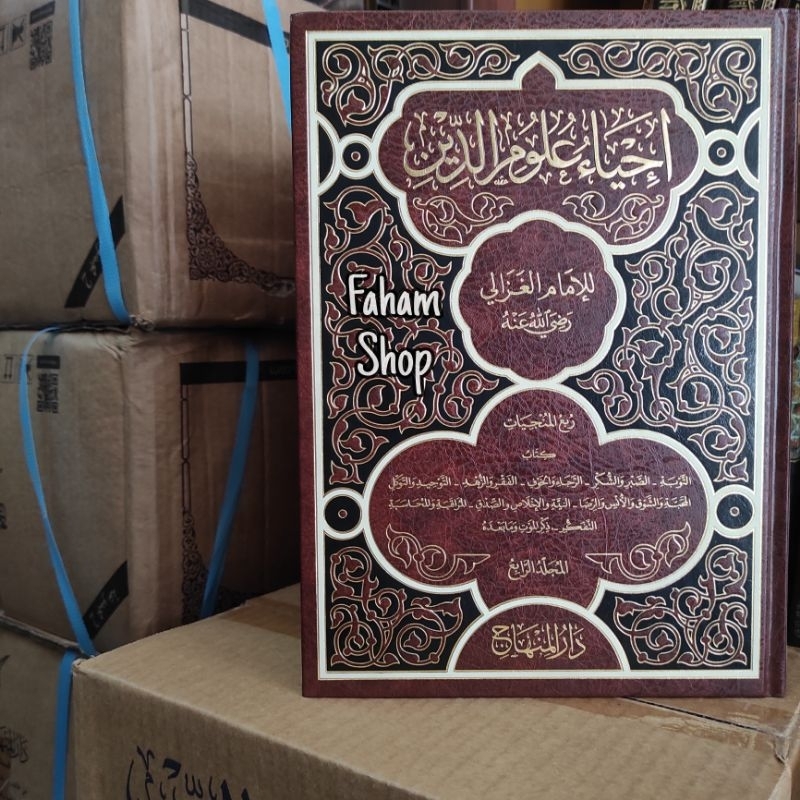 إحياء علوم الدين
للإمام الغزالي
رضي الله عنه
Faham
Shop
ربع المنجيات
كتاب
التوبة - الصبر والشكر - الرجاء والخوف - الفقر والزهد - التوحيد والتوكل
المحبة والشوق والأنس والرضا - النية والإخلاص والصدق - المراقبة والمحاسبة
التفكر - ذكر الموت وما بعده
المجلد الرابع
دار المنهاج